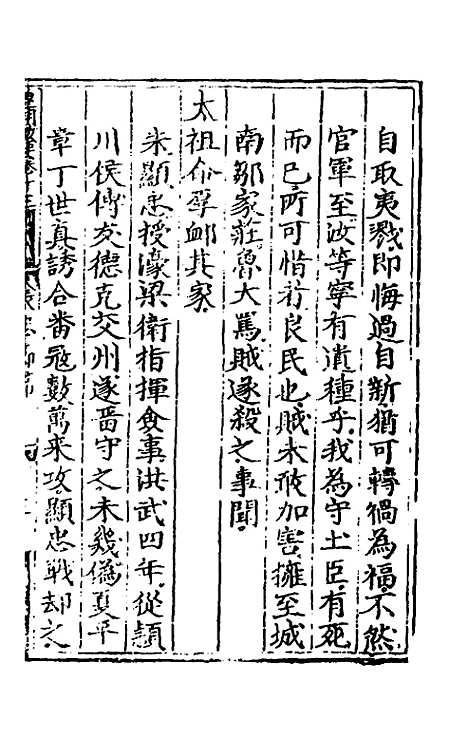 自取夷戮即悔過自新猶可轉禍為福不然
官軍至汝等寧有遺種乎我為守土臣有死
而已所可惜者良民也賊未敢加害擁至城
南鄒家莊魯大罵賊遂殺之事聞
太祖命厚卹其家
朱顯忠授濠梁衛指揮僉事洪武四年從潁
川侯傅友德克文州遂畱守之未幾偽夏平
章丁世真誘合番寇數萬來攻顯忠戰却之